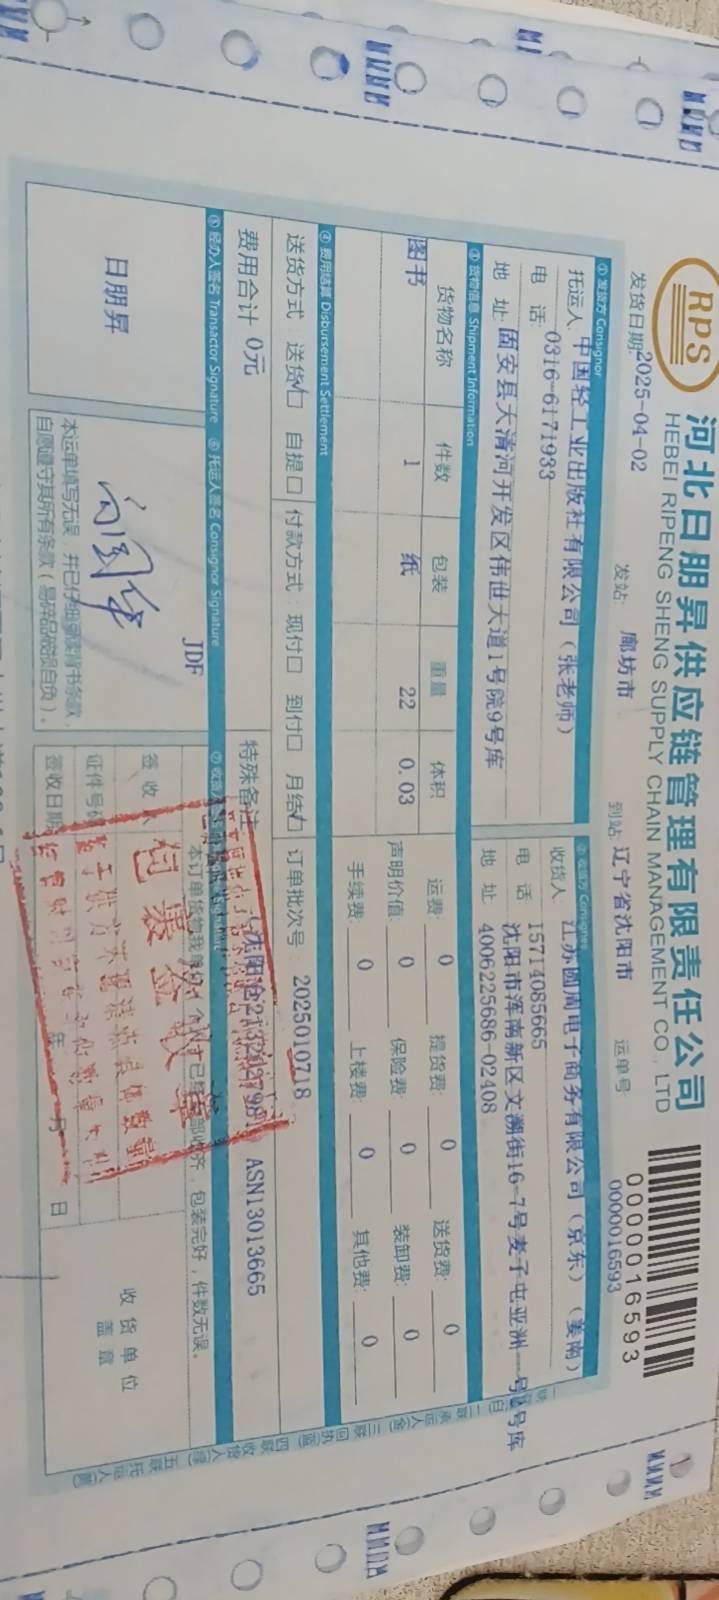 RPS
河北日朋昇供应链管理有限责任公司
HEBEI RIPENG SHENG SUPPLY CHAIN MANAGEMENT CO., LTD
0000016593
发货日期: 2025-04-02 发站: 廊坊市 到站: 辽宁省沈阳市 运单号: 0000016593
① 发货方 Consignor
托运人: 中国轻工业出版社有限公司(张老师)
电 话: 0316-6171933
地 址: 固安县大清河开发区伟世大道1号院9号库
② 收货方 Consignee
收货人: 江苏圆周电子商务有限公司(京东)(姜南)
电 话: 15714085665
4006225686-02408
地 址: 沈阳市浑南新区文溯街16-7号麦子屯亚洲一号 号库
③ 货物信息 Shipment Information
货物名称 件数 包装 重量 体积
图书 1 纸 22 0.03
运费: 0 提货费: 0 送货费: 0
声明价值: 0 保险费: 0 装卸费: 0
手续费: 0 上楼费: 0 其他费: 0
④ 费用结算 Disbursement Settlement
送货方式: 送货☑ 自提口 付款方式: 现付口 到付口 月结☑ 订单批次号: 2025010718
费用合计 0元 特殊备注: ASN13013665
⑤ 经办人签名 Transactor Signature ⑥ 托运人签名 Consignor Signature
日朋昇
JDF
本运单填写无误,并已仔细阅读背书条款,
自愿遵守其所有条款(易碎品破损自负)。
包装完好,件数无误。
签收人
证件号码
签收日期: 年 月 日
收货单位
盖章
包装签收章